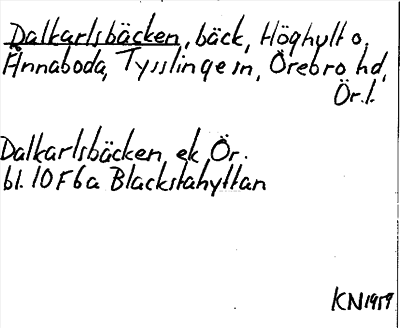 Dalkarlsbäcken, bäck, Höghult o.
Ännaboda, Tysslinge sn, Örebro hd,
Ör.l.
Dalkarlsbäcken, ek Ör.
bl. 10F6a Blackstahyttan
KN1959